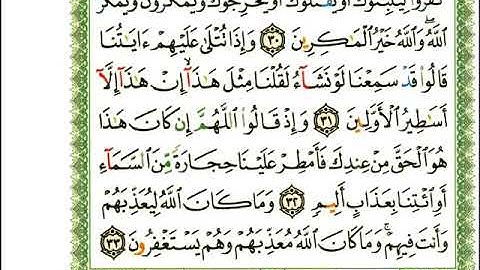 كَفَرُوا۟ لِيُثْبِتُوكَ أَوْ يَقْتُلُوكَ أَوْ يُخْرِجُوكَ ۚ وَيَمْكُرُونَ وَيَمْكُرُ
ٱللَّهُ ۖ وَٱللَّهُ خَيْرُ ٱلْمَٰكِرِينَ ٣٠ وَإِذَا تُتْلَىٰ عَلَيْهِمْ ءَايَٰتُنَا
قَالُوا۟ قَدْ سَمِعْنَا لَوْ نَشَآءُ لَقُلْنَا مِثْلَ هَٰذَآ ۙ إِنْ هَٰذَآ إِلَّآ
أَسَٰطِيرُ ٱلْأَوَّلِينَ ٣١ وَإِذْ قَالُوا۟ ٱللَّهُمَّ إِن كَانَ هَٰذَا
هُوَ ٱلْحَقَّ مِنْ عِندِكَ فَأَمْطِرْ عَلَيْنَا حِجَارَةً مِّنَ ٱلسَّمَآءِ
أَوِ ٱئْتِنَا بِعَذَابٍ أَلِيمٍ ٣٢ وَمَا كَانَ ٱللَّهُ لِيُعَذِّبَهُمْ
وَأَنتَ فِيهِمْ ۚ وَمَا كَانَ ٱللَّهُ مُعَذِّبَهُمْ وَهُمْ يَسْتَغْفِرُونَ ٣٣